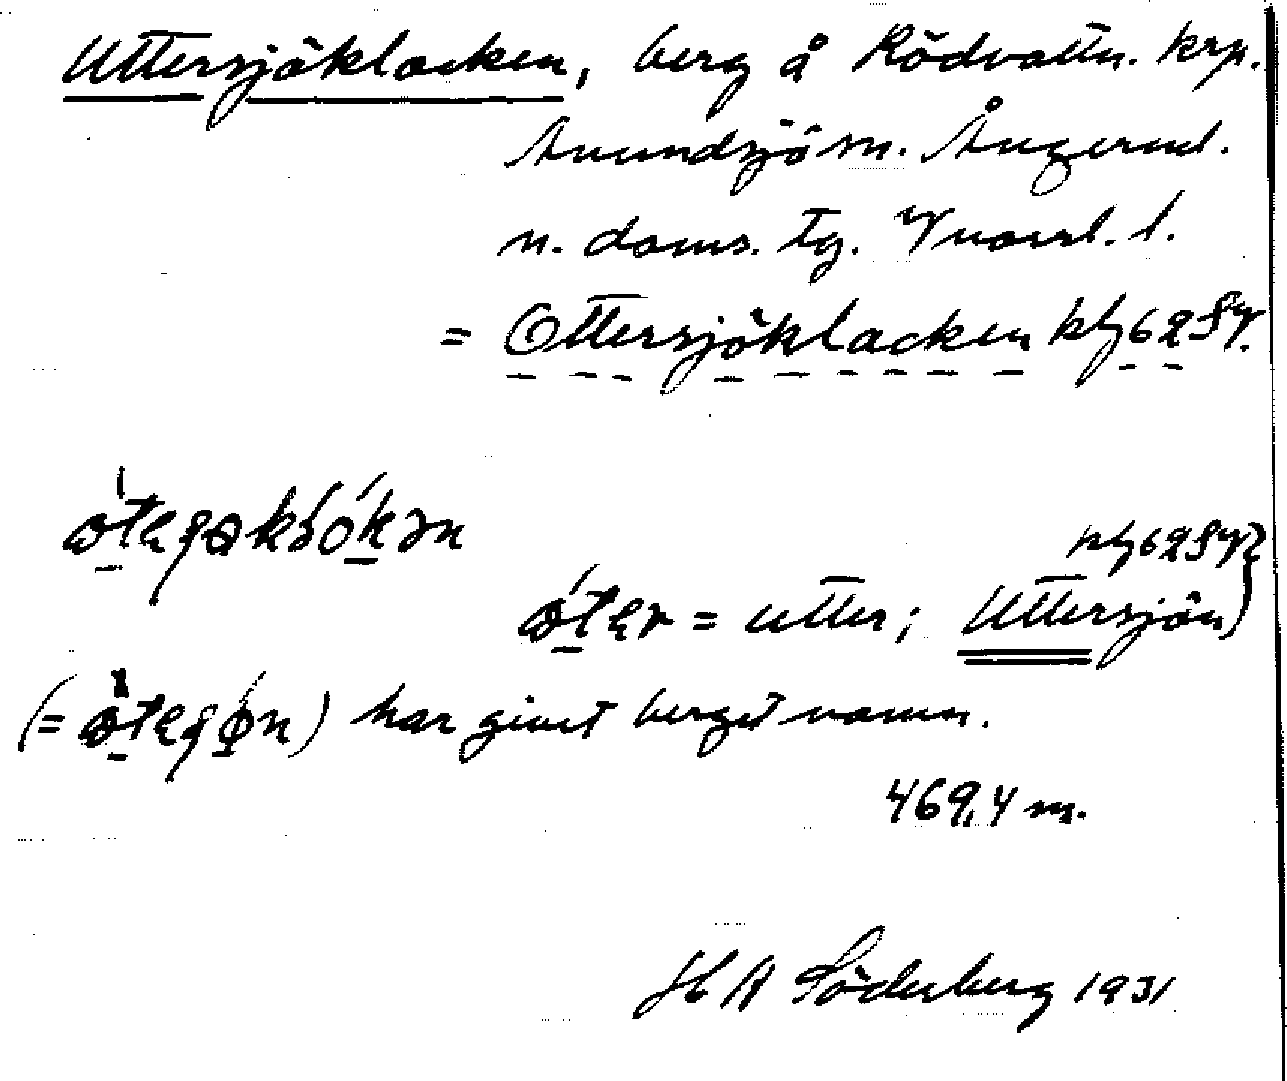 Uttersjöklacken, berg å Rödvattn. krp.
Anundsjö sn. Ångerml.
n. doms. tg. Vnorrl. l.
= Ottersjöklacken kbl 62 Sv.
kbl 62 Sv
= utter; Uttersjön)
(= ) har givit berget namn.
469,4 m.
H A Söderberg 1931